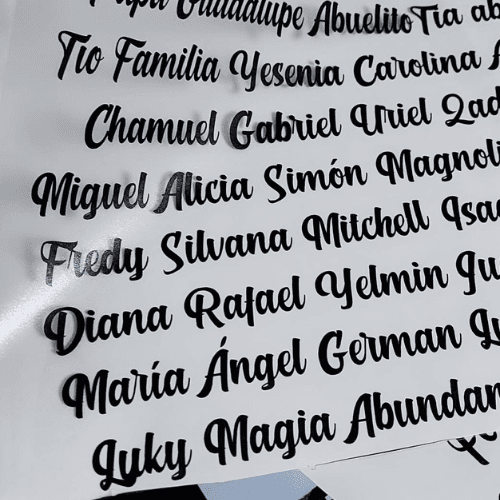 Guadalupe Abuelito Tía
Tío Familia Yesenia Carolina
Chamuel Gabriel Uriel
Miguel Alicia Simón
Fredy Silvana Mitchell
Diana Rafael Yelmin
María Ángel German
Luky Magia